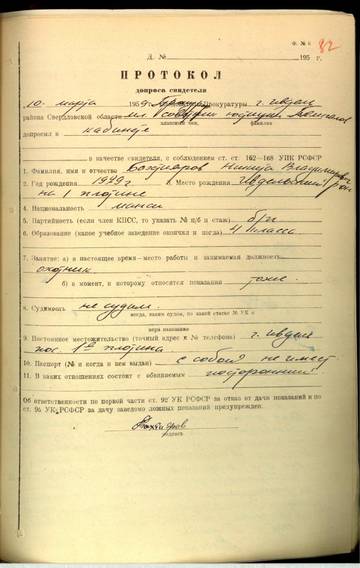 Ф. № 6
82
Д. №                195   г.
ПРОТОКОЛ
допроса свидетеля
10 марта 1959 г. Прокуратуры г. Ивдель
района Свердловской области мл. советник юстиции
классный чин,          фамилия
допросил в кабинете
в качестве свидетеля, с соблюдением ст. ст. 162—168 УПК РСФСР
1. Фамилия, имя и отчество Бахтияров Никита Владимирович
2. Год рождения 1929 г.   3. Место рождения Ивдельский р-он
1 плотине
4. Национальность манси
5. Партийность (если член КПСС, то указать № п/б и стаж) б/п
6. Образование (какое учебное заведение окончил и когда) 4 класса
7. Занятие: а) в настоящее время—место работы и занимаемая должность
охотник
б) в момент, к которому относятся показания тоже.
8. Судимость не судим.
когда, каким судом, по какой статье № УК и
мера наказания
9. Постоянное местожительство (точный адрес и № телефона) г. Ивдель
пос. 1ая плотина
10. Паспорт (№ и когда и кем выдан) с собой не имеет
11. В каких отношениях состоит с обвиняемым посторонний
Об ответственности по первой части ст. 92 УК РСФСР за отказ от дачи показаний и по
ст. 95 УК РСФСР за дачу заведомо ложных показаний предупрежден.
Бахтияров
подпись